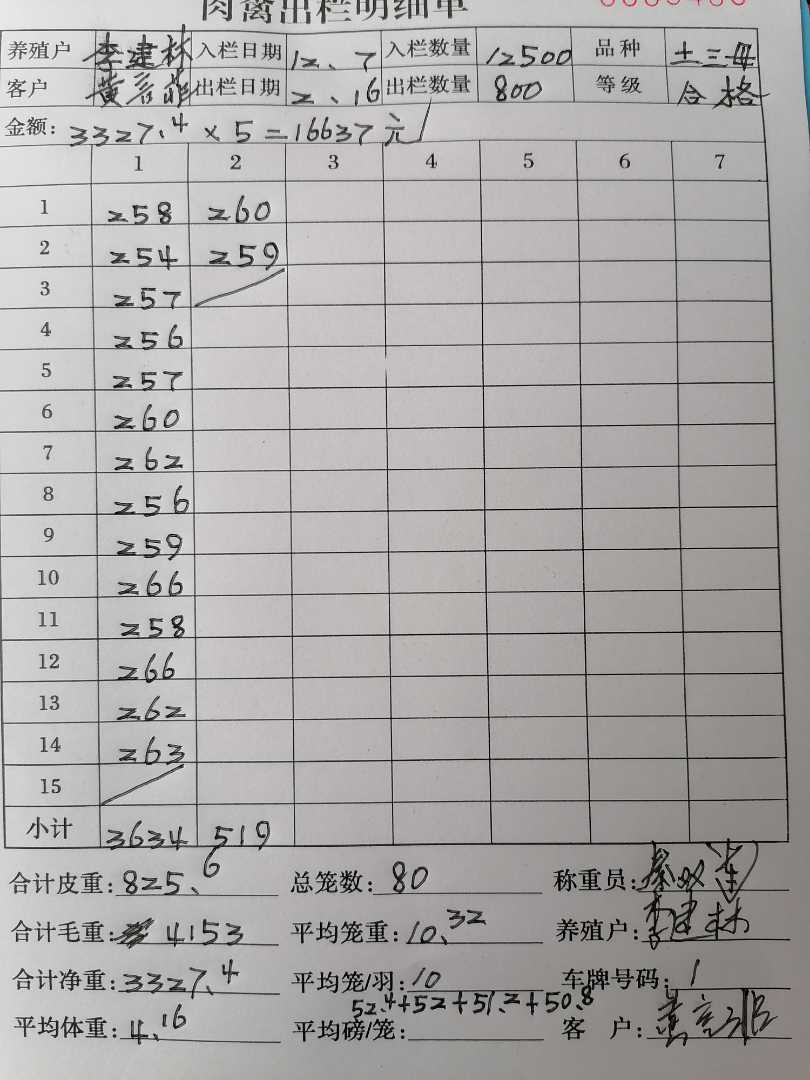 肉禽出栏明细单
养殖户 李建林 入栏日期 12、7 入栏数量 12500 品种 土三母
客户 黄言菲 出栏日期 2、16 出栏数量 800 等级 合格
金额: 3327.4 × 5 = 16637元
1 2 3 4 5 6 7
1 258 260
2 254 259
3 257
4 256
5 257
6 260
7 262
8 256
9 259
10 266
11 258
12 266
13 262
14 263
15
小计 3634 519
合计皮重: 825.6 总笼数: 80 称重员:
合计毛重: 4153 平均笼重: 10.32 养殖户: 李建林
合计净重: 3327.4 平均笼/羽: 10 车牌号码: 1
52.4+52+51.2+50.8
平均体重: 4.16 平均磅/笼: 客 户: